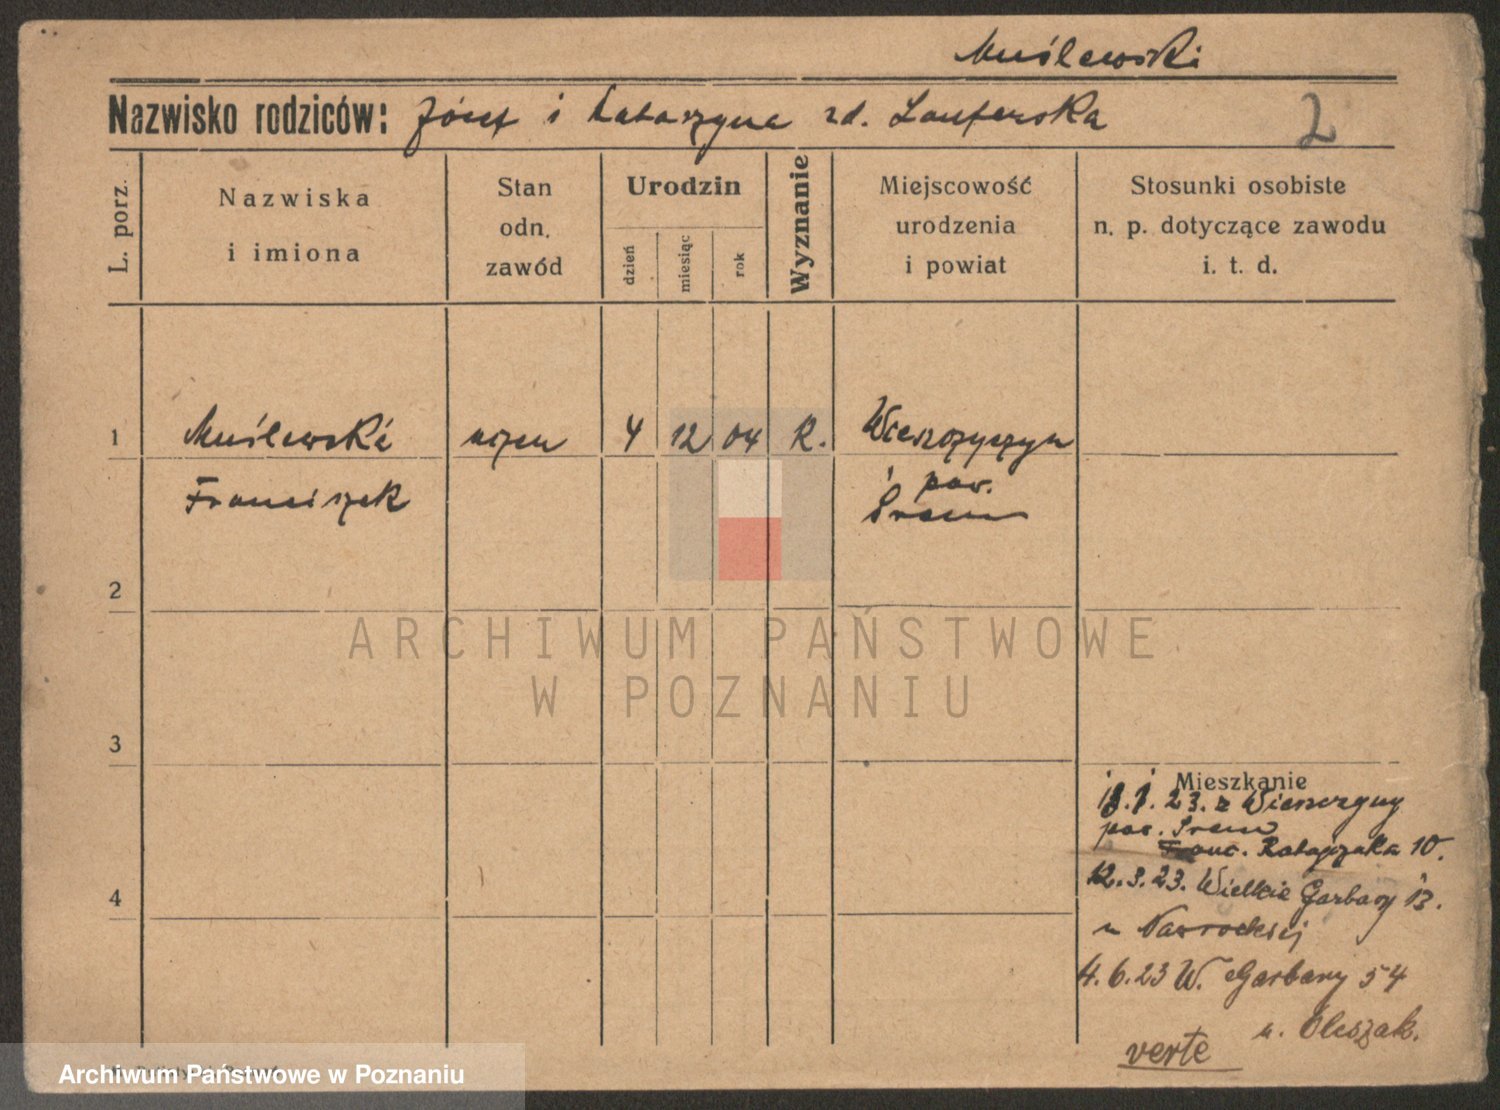 Muślewski
Nazwisko rodziców: Józef i Katarzyna zd.
2
L. porz.
Nazwiska
i imiona
Stan
odn.
zawód
Urodzin
dzień
miesiąc
rok
Wyznanie
Miejscowość
urodzenia
i powiat
Stosunki osobiste
n. p. dotyczące zawodu
i. t. d.
1
Muślewski
uczeń
4
12
04
R.
Franciszek
pow.
Śrem
2
ARCHIWUM PAŃSTWOWE
W POZNANIU
3
Mieszkanie
23. z
pow. Śrem
Franc. Ratajczaka 10.
12.3.23. Wielkie Garbary 13.
u Nawrockiej
4.6.23 W. Garbary 54
u. Oleszak.
4
verte
Archiwum Państwowe w Poznaniu